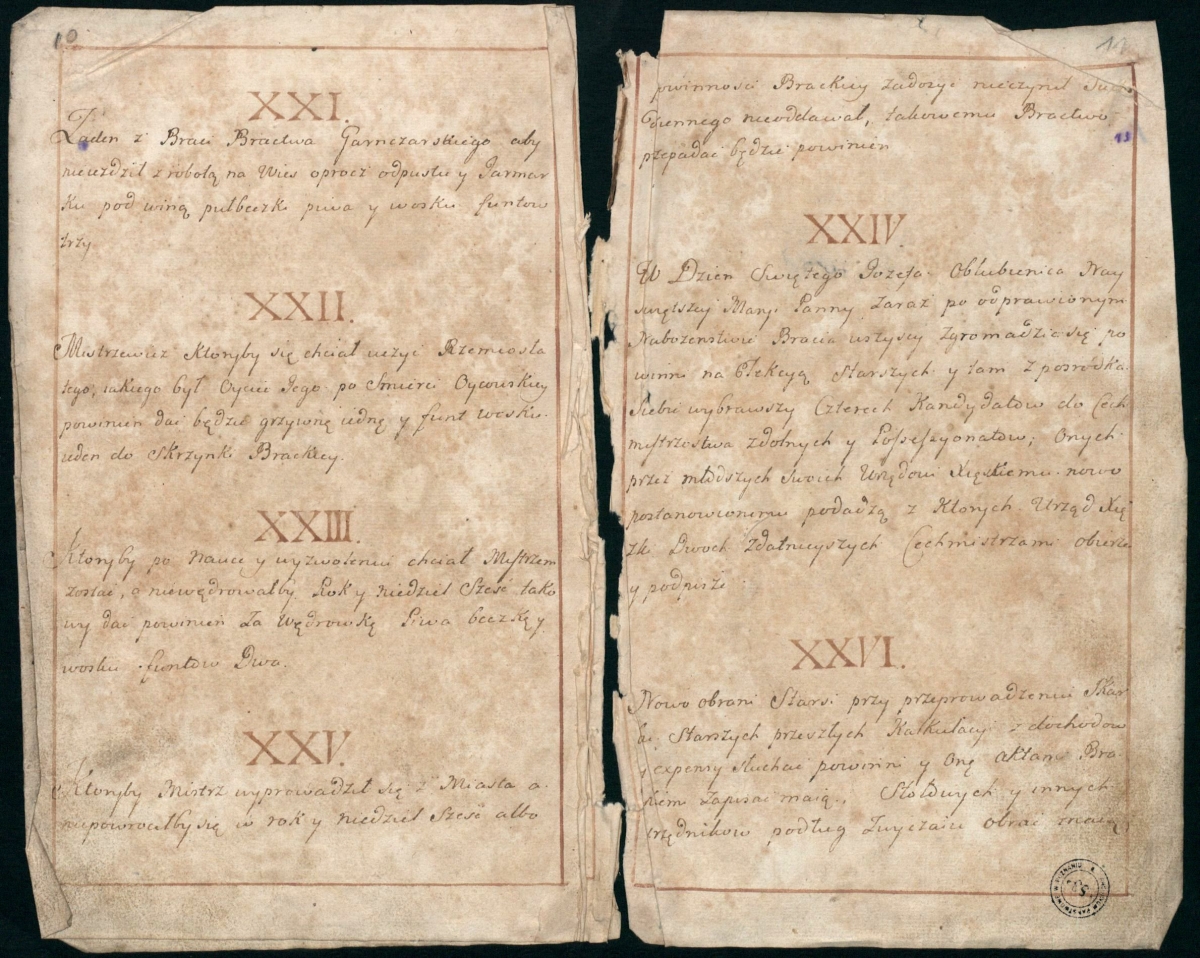 10
XXI.
Żaden z Braci Bractwa Garnczarskiego aby
nieiezdził z robotą na Wies oprocz odpustu y Jarmar
ku pod winą pułbeczki piwa y wosku funtow
trzy
XXII.
Mistrzewicz Ktoryby się chciał uczyc Rzemiosła
tego, iakiego był Oyciec Jego po Smierci Oycowskiey
powinien dać będzie grzywnę iednę y funt wosku
ieden do Skrzynki Brackiey.
XXIII.
Ktoryby po Nauce y wyzwoleniu chciał Mistrzem
zostać, a niewędrowałby Rok y niedziel Sześć tako
wy dać powinien Za Wędrowkę Piwa beczkę y
wosku funtow Dwa.
XXV.
Ktoryby Mistrz wyprowadził się z Miasta a
niepowrociłby się w rok y niedziel Sześć albo
11
powinności Brackiey zadosyć nieczynił Such
Dziennego nieoddawał, takowemu Bractwo
przepadać będzie powinien
13
XXIV.
W Dzien Swiętego Jozefa Oblubienica Nay
swiętszey Maryi Panny Zaraz po odprawionym
Nabożenstwie Bracia wszyscy zgromadzic się po
winni na Elekcyą Starszych y tam z posrodka
Siebie wybrawszy Czterech Kandydatow do Cech
mistrzostwa zdolnych y Possessyonatow; Onych
przez młodszych swoich Urzędowi Xięskiemu nowo
postanowionemu podadzą z Ktorych Urząd Xię
zki Dwoch zdatnieyszych Cechmistrzami obierze
y podpisze
XXVI.
Nowo obrani Starsi przy przeprowadzeniu Skar
bu, Starszych przeszłych Kalkulacyi z dochodow
y expensy słuchać powinni y Onę Aktami Bra
ckiemi zapisać maią. Stołowych y innych
urzędnikow podług Zwyczaiu obrać maią